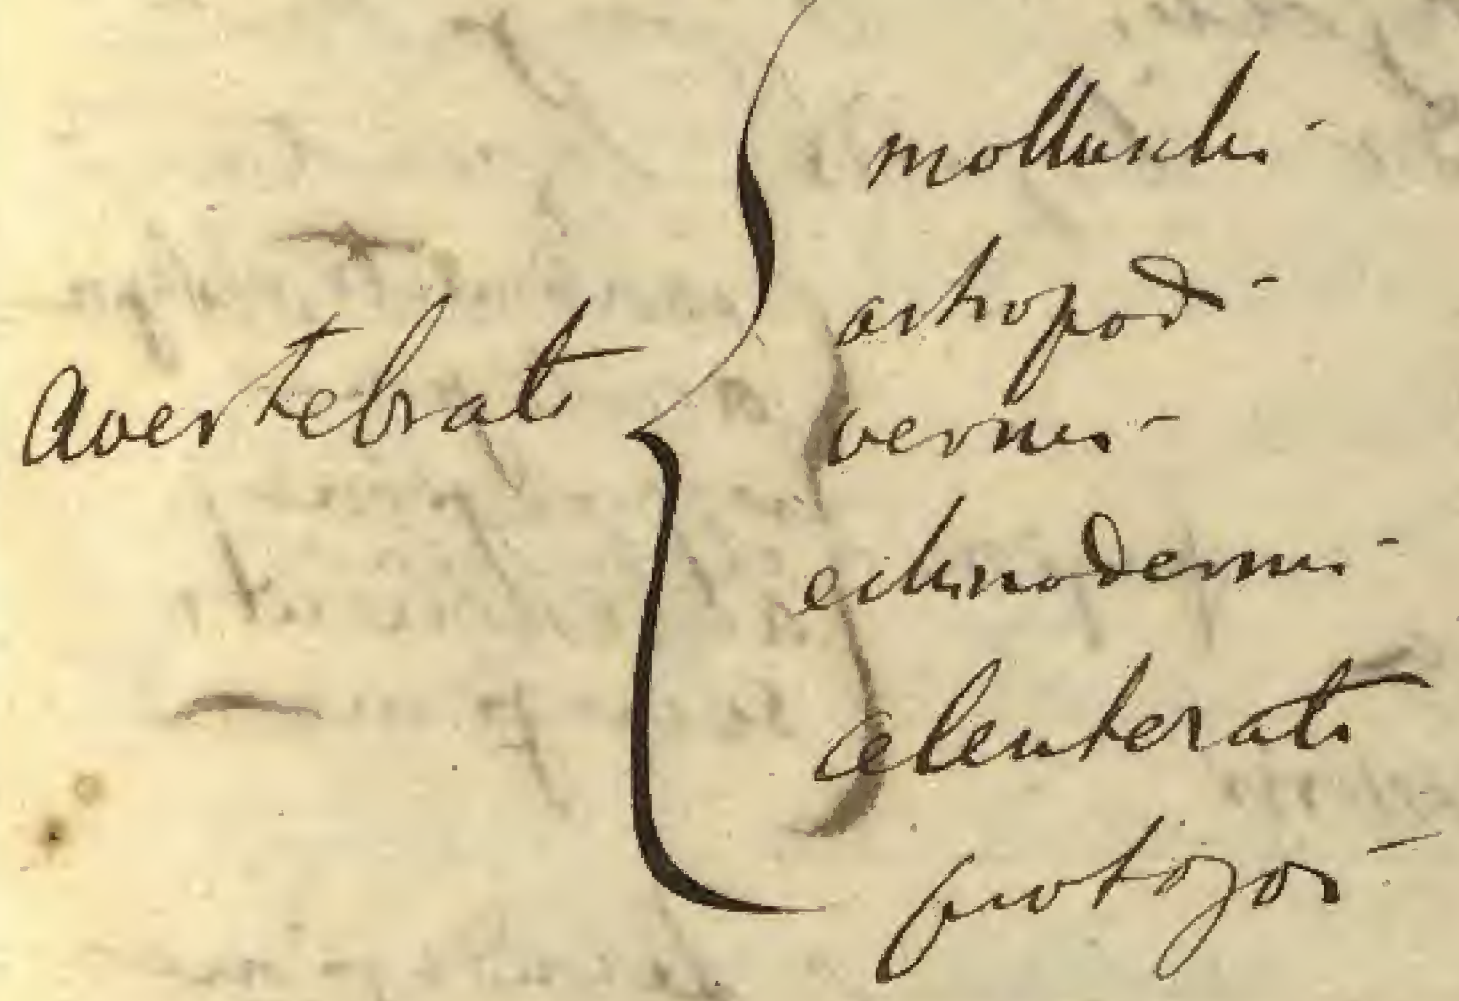 Avertebrati
molluschi -
artropodi -
vermi -
echinodermi -
celenterati
protozoi -